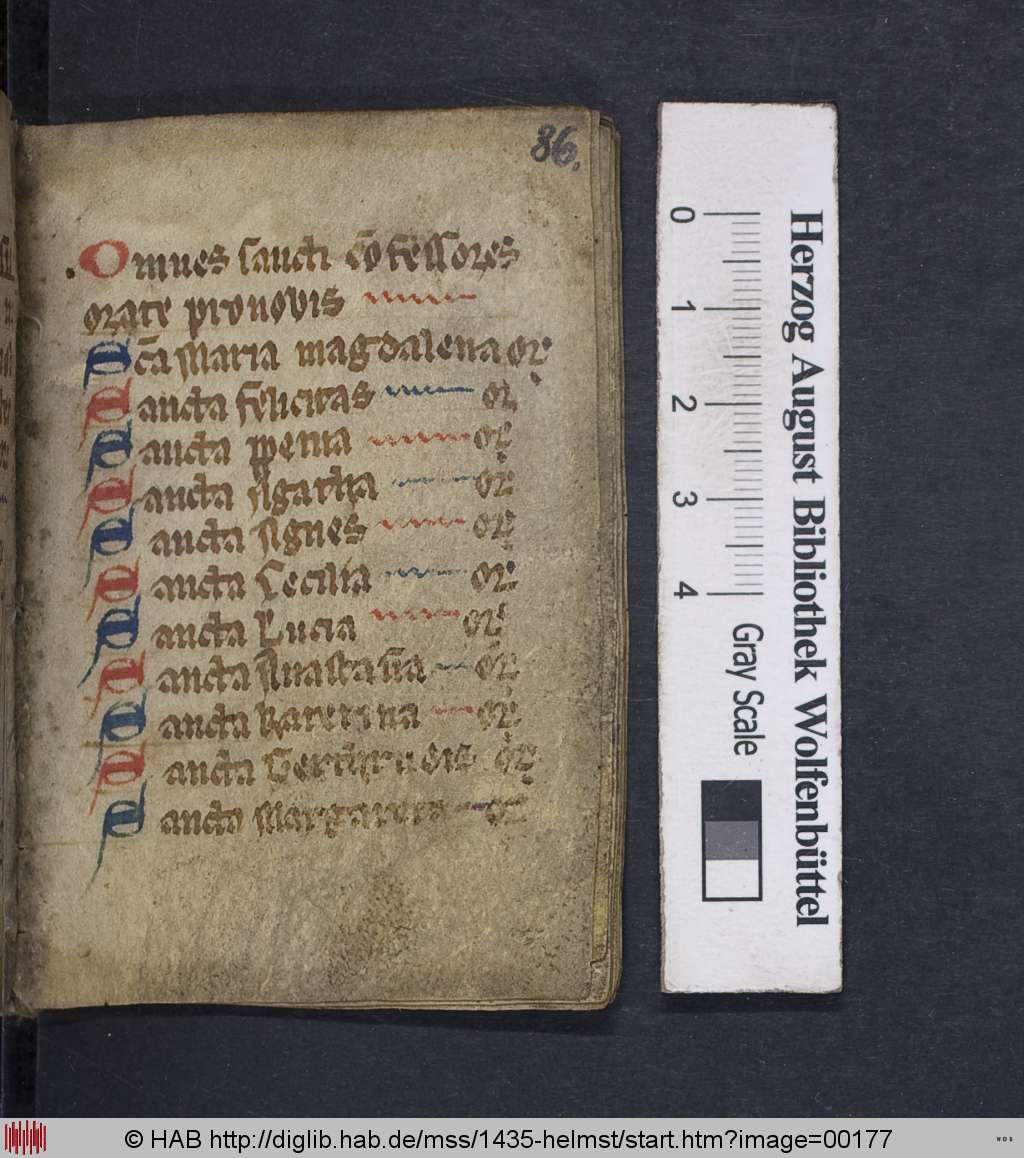 86.
Omnes sancti c̄ofessores
orate pro nobis
Sc̄a Maria magdalena or
Sancta felicitas or
Sancta or
Sancta Agatha or
Sancta Agnes or
Sancta Cecilia or
Sancta Lucia or
Sancta Anastasia or
Sancta katerina or
Sancta Gertrudis or
Sancta Margareta or
Herzog August Bibliothek Wolfenbüttel
0 1 2 3 4 Gray Scale
© HAB http://diglib.hab.de/mss/1435-helmst/start.htm?image=00177